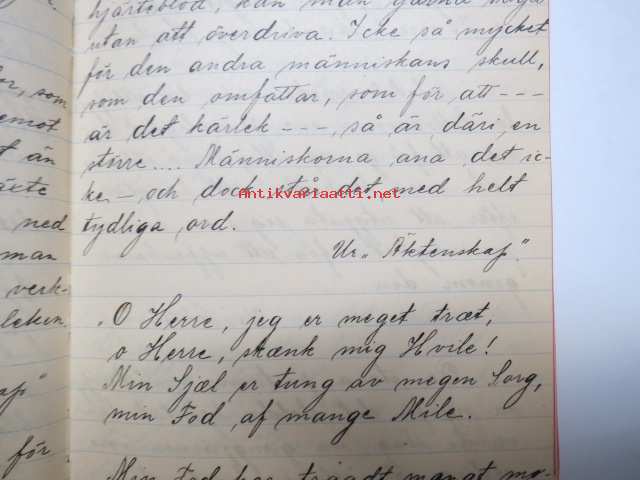 hjärteblod, kan man gärna
utan att överdriva. Icke så mycket
för den andra människans skull,
som den omfattar, som för att ---
är det kärlek ---, så är däri en
större.... Människorna ana det ic-
ke - och dock står det med helt
tydliga ord.
Ur „Äktenskap".
„O Herre, jeg er meget træt,
o Herre, skænk mig Hvile!
Min Sjæl er tung av megen Sorg,
min Fod af mange Mile.
Min Fod har traadt mangt
som
emot
t än
ned
man
verk-
leken.
för
Antikvariaatti.net